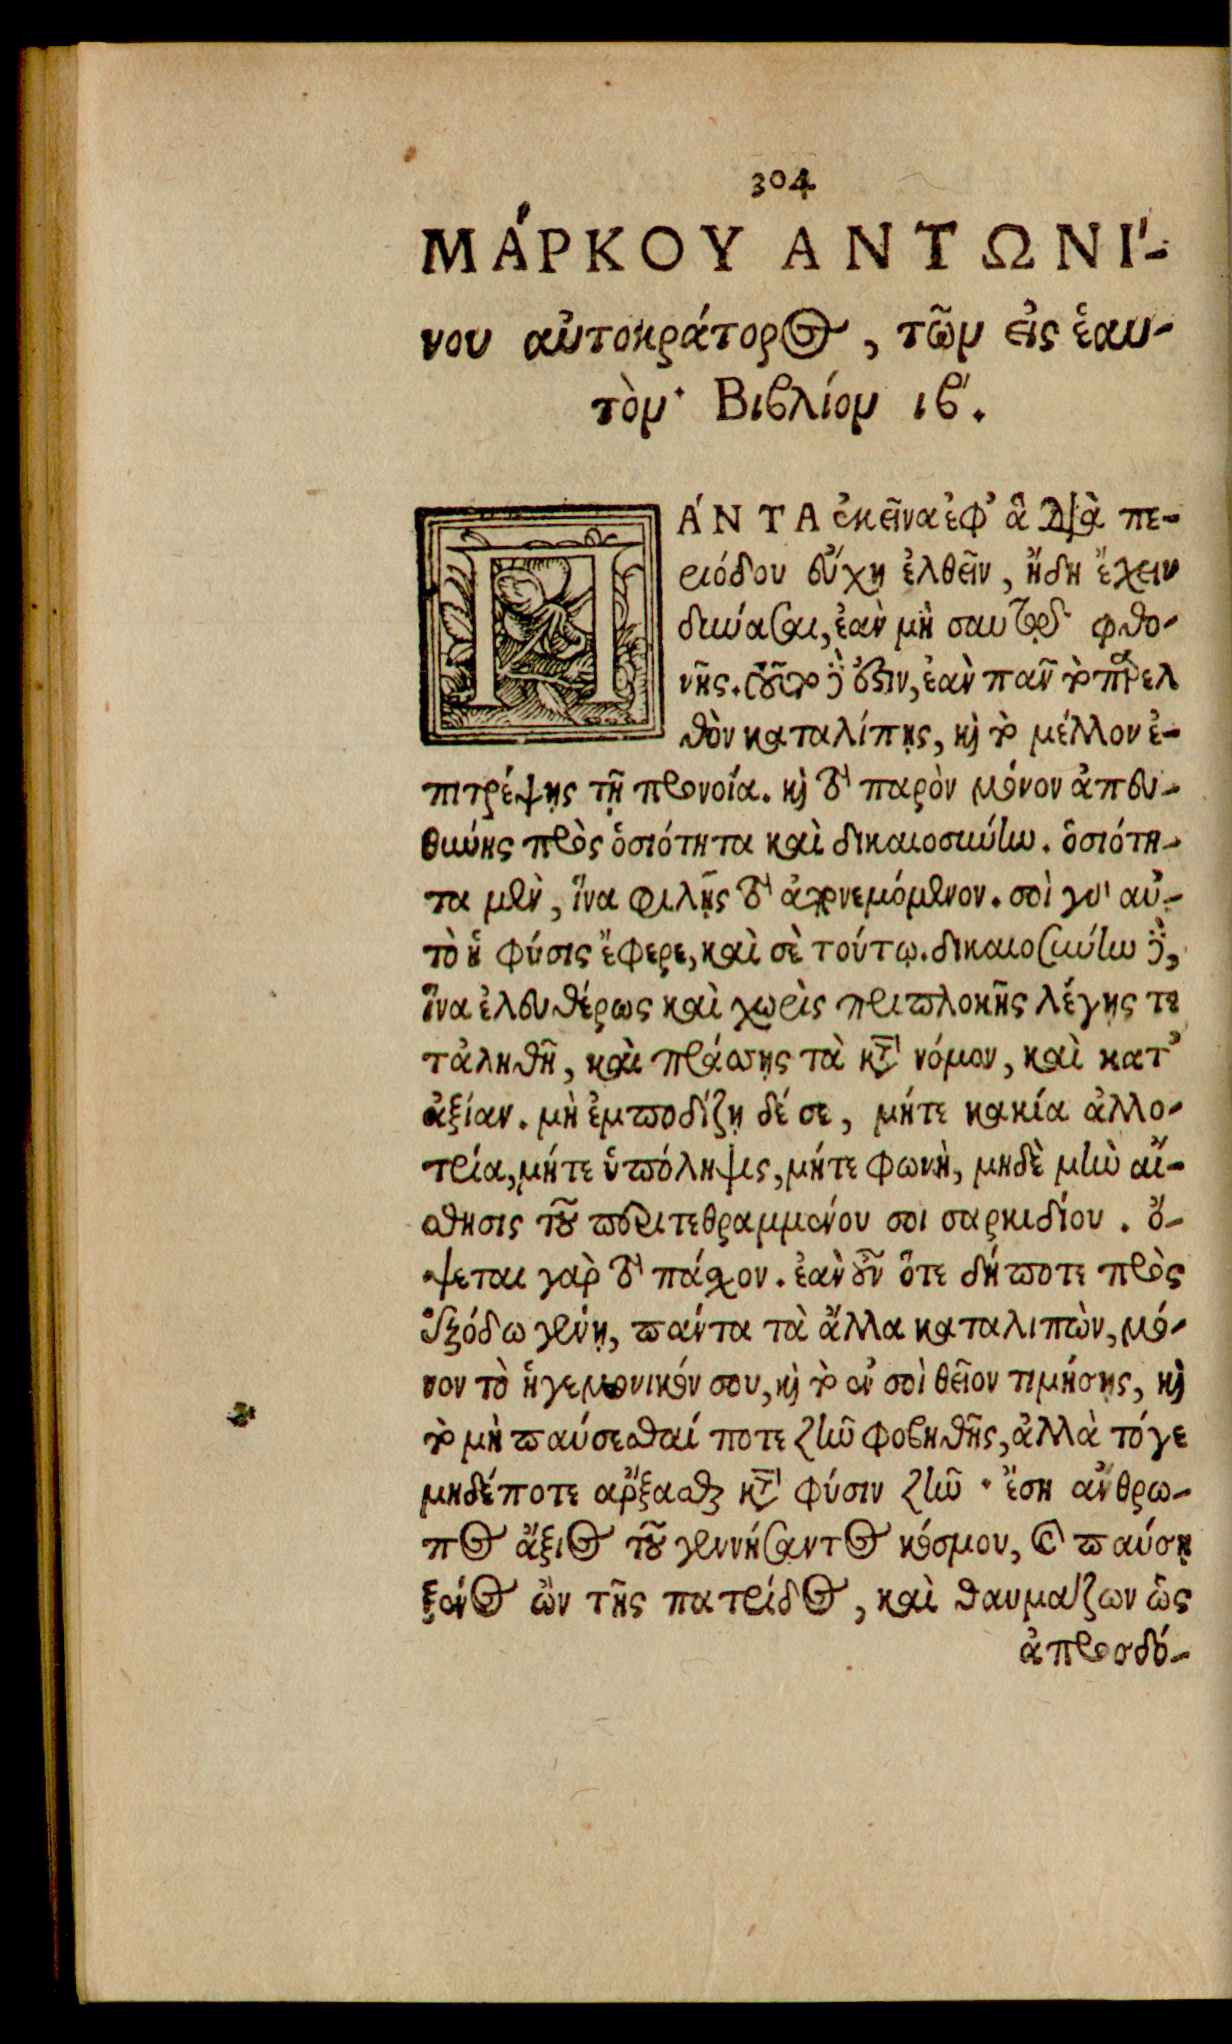 304
ΜΆΡΚΟΥ ΑΝΤΩΝΊ-
νου αὐτοκράτορος, τῶν εἰς ἑαυ-
τὸν· Βιβλίον ιβ'.
ΠΆΝΤΑ ἐκεῖνα ἐφ' ἃ διὰ πε-
ριόδου εὔχῃ ἐλθεῖν, ἤδη ἔχειν
δύνασαι, ἐὰν μὴ σαυτῷ φθο-
νῇς. τοῦτο δὲ ἔστιν, ἐὰν πᾶν τὸ παρελ
θὸν καταλίπῃς, καὶ τὸ μέλλον ἐ-
πιτρέψῃς τῇ προνοίᾳ. καὶ τὸ παρὸν μόνον ἀπευ-
θύνῃς πρὸς ὁσιότητα καὶ δικαιοσύνην. ὁσιότη-
τα μὲν, ἵνα φιλῇς τὸ ἀπονεμόμενον. σοὶ γὰρ αὐ-
τὸ ἡ φύσις ἔφερε, καὶ σὲ τούτῳ. δικαιοσύνην δὲ,
ἵνα ἐλευθέρως καὶ χωρὶς περιπλοκῆς λέγῃς τε
τἀληθῆ, καὶ πράσσῃς τὰ κατὰ νόμον, καὶ κατ'
ἀξίαν. μὴ ἐμποδίζῃ δέ σε, μήτε κακία ἀλλο-
τρία, μήτε ὑπόληψις, μήτε φωνὴ, μηδὲ μὴν αἴ-
σθησις τοῦ περιτεθραμμένου σοι σαρκιδίου. ὄ-
ψεται γὰρ τὸ πάσχον. ἐὰν οὖν ὅτε δήποτε πρὸς
ἐξόδῳ γένῃ, πάντα τὰ ἄλλα καταλιπὼν, μό-
νον τὸ ἡγεμονικόν σου, καὶ τὸ ἐν σοὶ θεῖον τιμήσῃς, καὶ
τὸ μὴ παύσεσθαί ποτε ζῆν φοβηθῇς, ἀλλὰ τό γε
μηδέποτε ἄρξασθαι κατὰ φύσιν ζῆν· ἔσῃ ἄνθρω-
πος ἄξιος τοῦ γεννήσαντος κόσμου, καὶ παύσῃ
ξένος ὢν τῆς πατρίδος, καὶ θαυμάζων ὡς
ἀπροσδό-